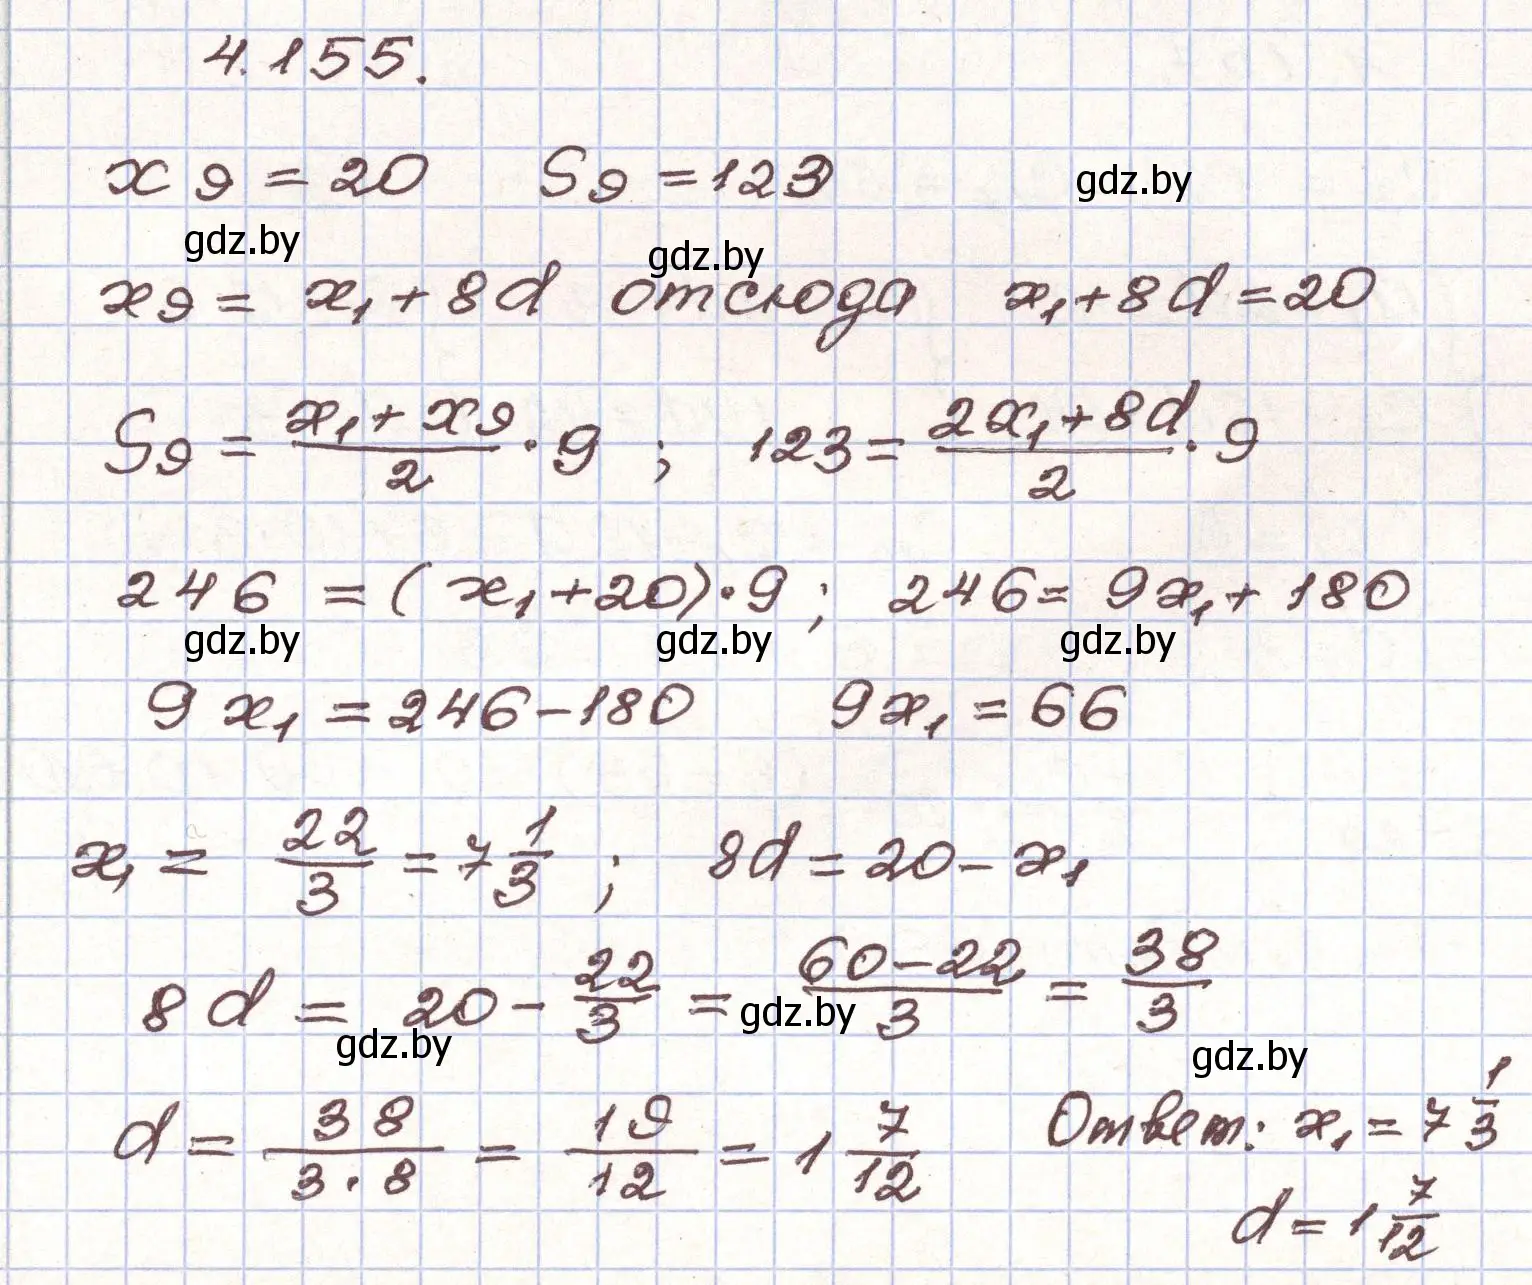 4.155.
x₉ = 20 S₉ = 123 gdz.by
gdz.by gdz.by
x₉ = x₁ + 8d отсюда x₁ + 8d = 20
S₉ = (x₁ + x₉)/2 · 9 ; 123 = (2x₁ + 8d)/2 · 9
246 = (x₁ + 20) · 9 ; 246 = 9x₁ + 180
gdz.by gdz.by gdz.by
9x₁ = 246 - 180 9x₁ = 66
x₁ = 22/3 = 7 1/3 ; 8d = 20 - x₁
8d = 20 - 22/3 = (60 - 22)/3 = 38/3
gdz.by gdz.by gdz.by
d = 38/(3 · 8) = 19/12 = 1 7/12 Ответ: x₁ = 7 1/3
d = 1 7/12